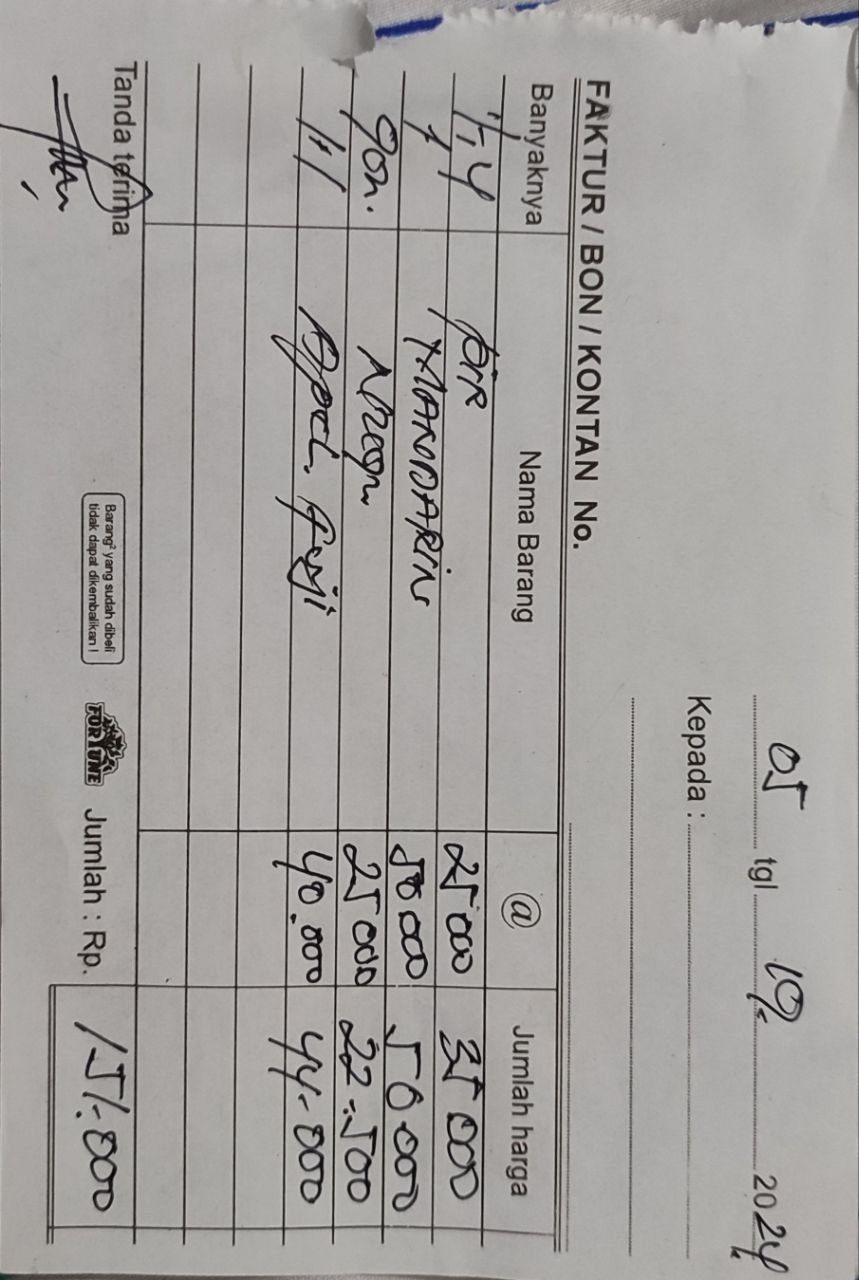 05 tgl 10/ 2024
Kepada :
FAKTUR / BON / KONTAN No.
Banyaknya Nama Barang @ Jumlah harga
1,4 PIR 25000 35000
1 MANDARIN 50000 50000
gon. 25000 22.500
1.1 Apel. Fuji 40.000 44.000
Tanda terima
Barang² yang sudah dibeli
tidak dapat dikembalikan !
FORTUNE
Jumlah : Rp. 151.000